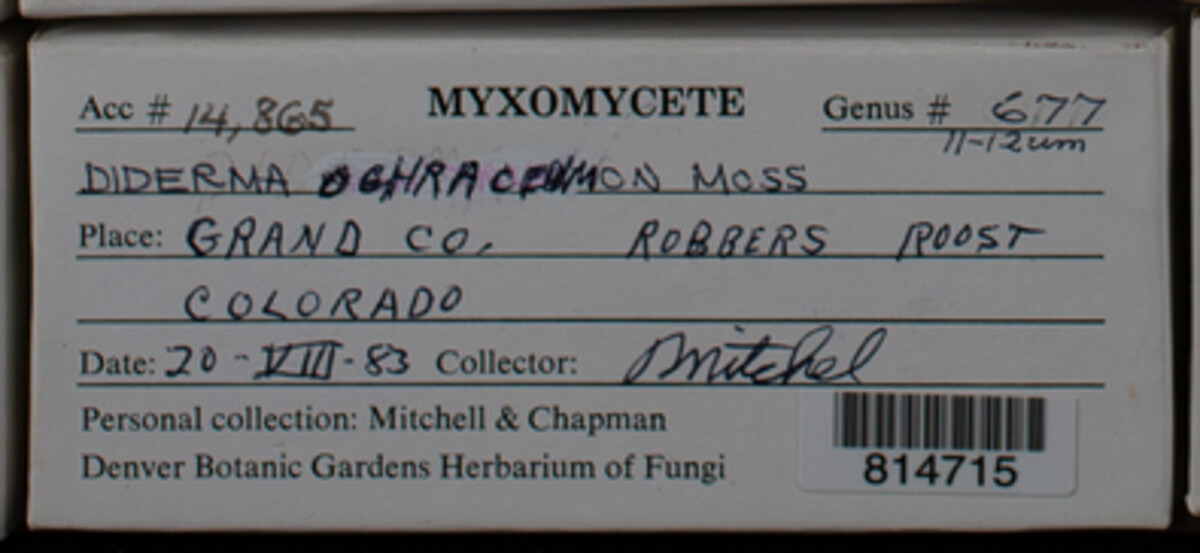 Acc # 14,865 MYXOMYCETE Genus # 677
11-12um
DIDERMA OCHRACEUM ON MOSS
Place: GRAND CO. ROBBERS ROOST
COLORADO
Date: 20-VIII-83 Collector: Mitchel
Personal collection: Mitchell & Chapman
Denver Botanic Gardens Herbarium of Fungi
814715